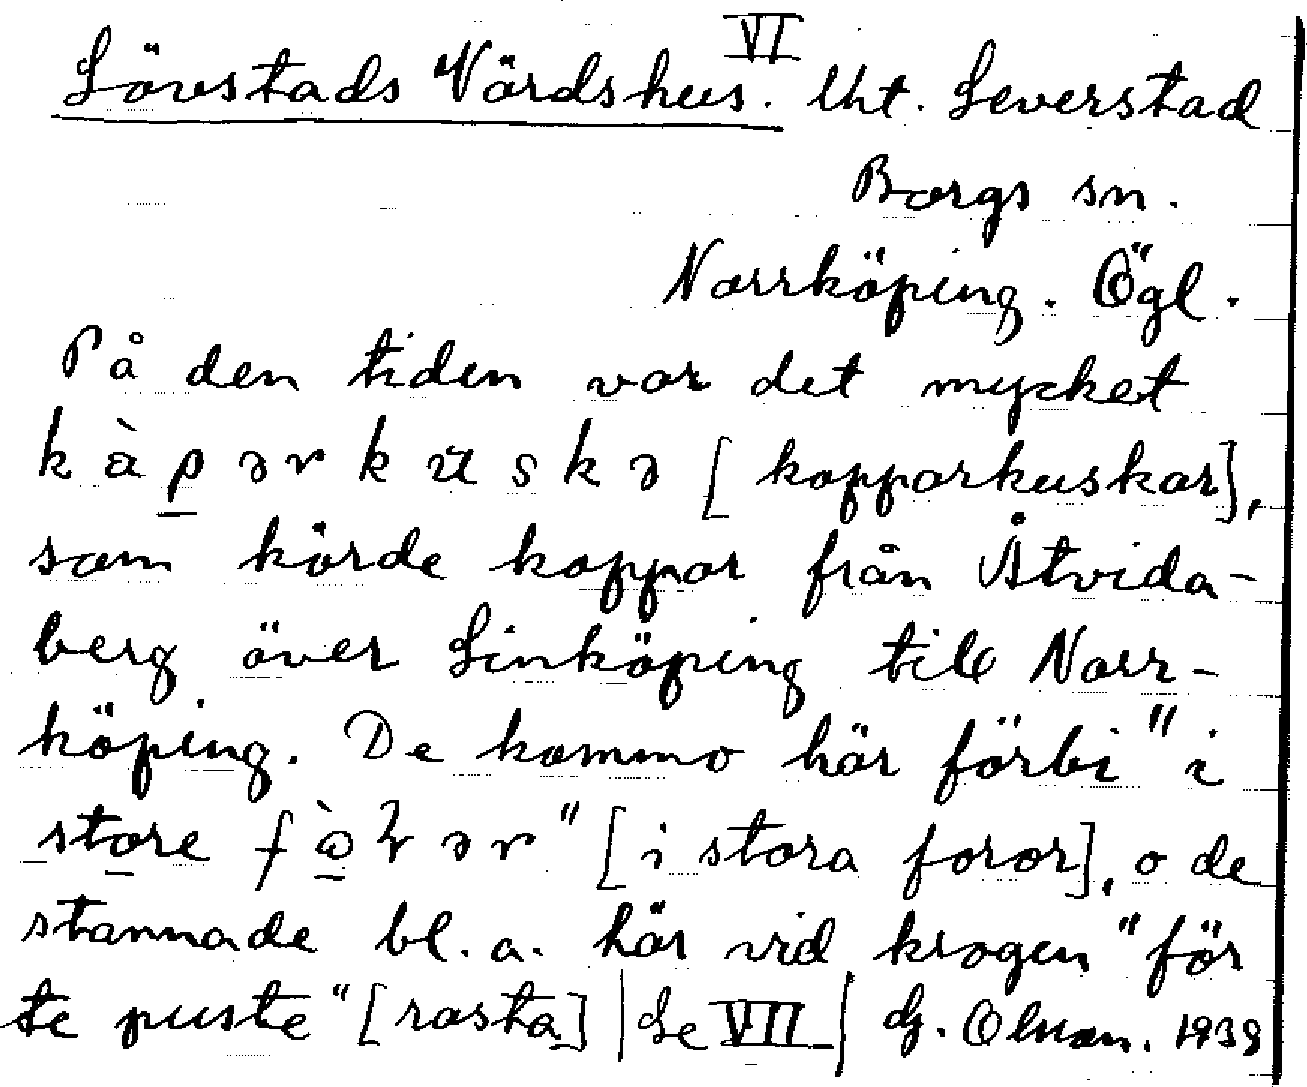 VI
Lövstads Värdshus. Utt. Leverstad
Borgs sn.
Norrköping. Ögl.
På den tiden var det mycket
k à p ə r k ŭ s k ə [kopparkuskar],
som körde koppar från Åtvida-
berg över Linköping till Norr-
köping. De kommo här förbi "i
store f o r ə r" [i stora foror], o de
stannade bl. a. här vid krogen "för
te puste" [rasta] | Se VII | G. Olson. 1939